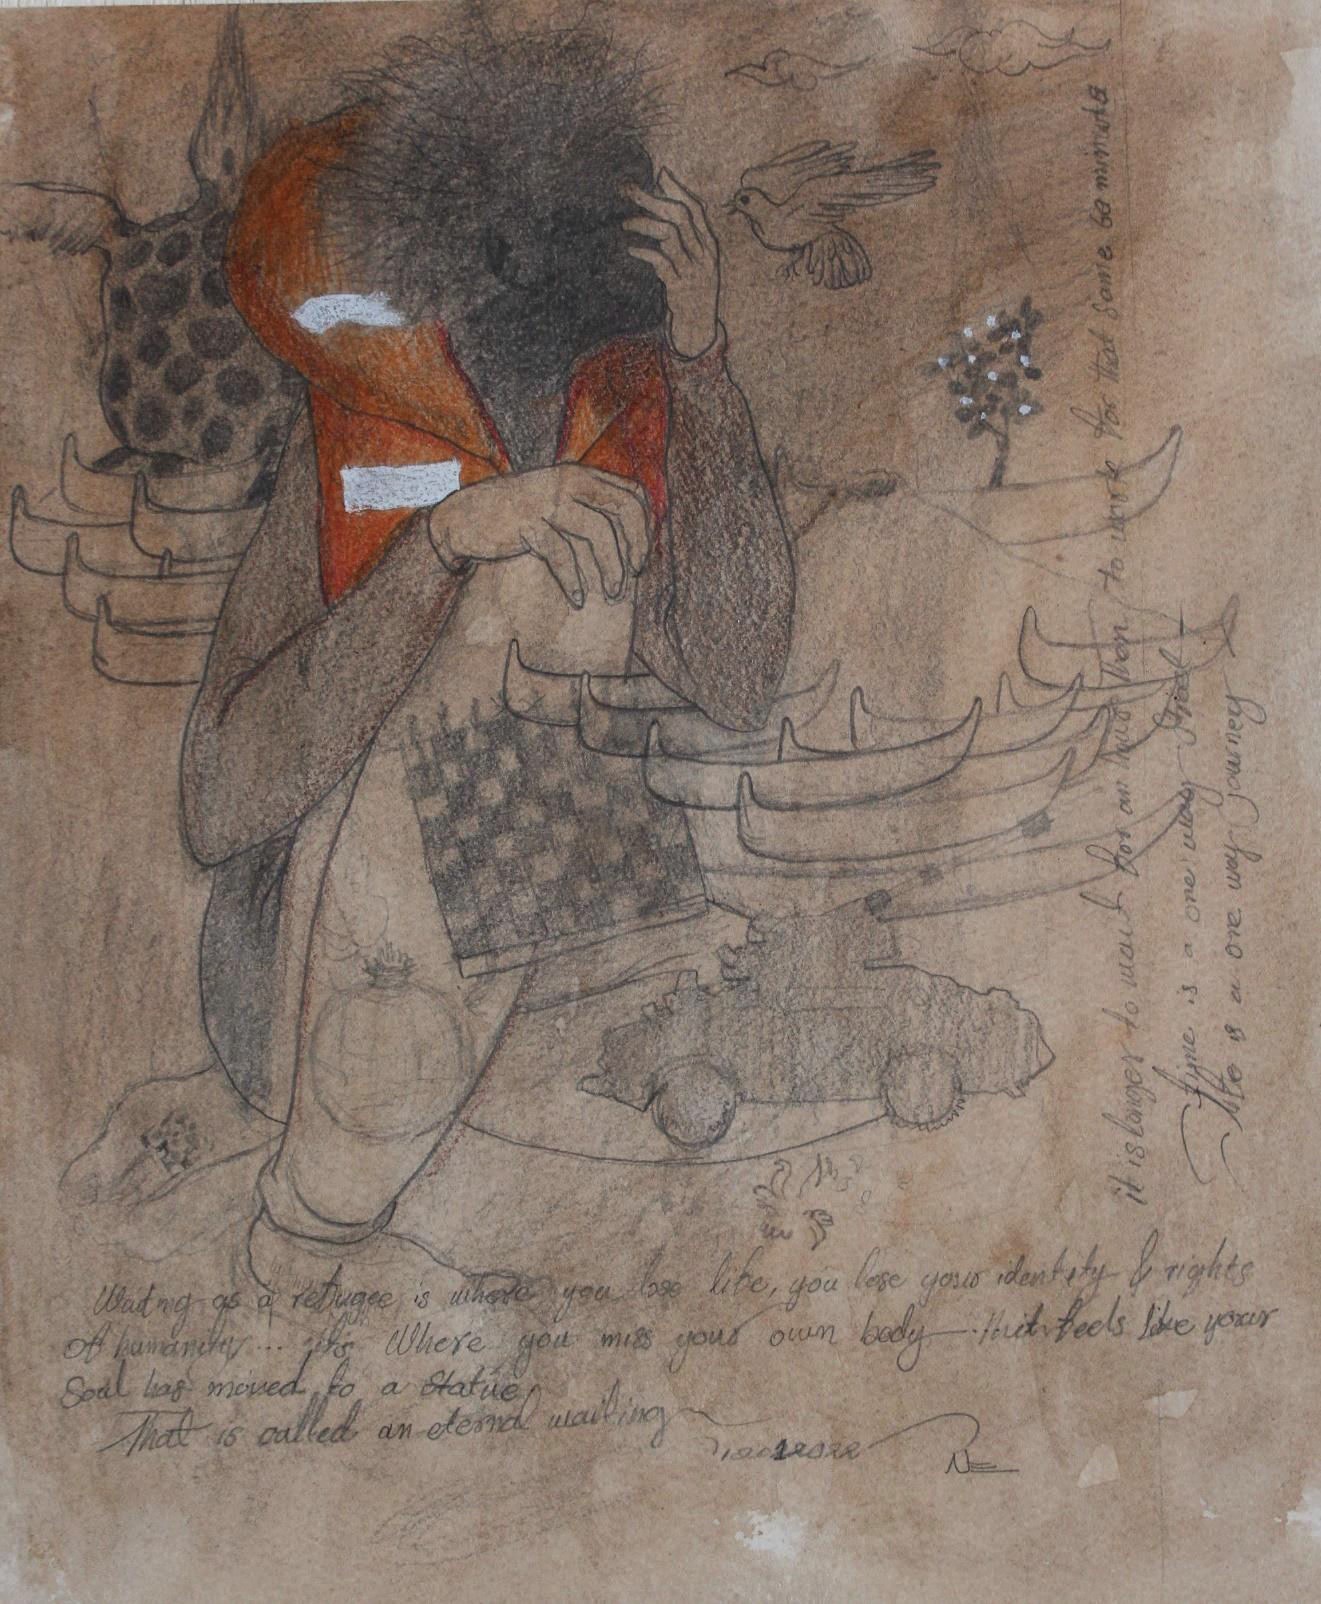 Waiting as a refugee is where you lose life, you lose your identity & rights
of humanity... it's where you miss your own body feels like your
Soul has moved to a statue
That is called an eternal waiting
NE
it is longer to wait for an hour then to wait for that some 60 minutes
time is a one way
life is a one way journey